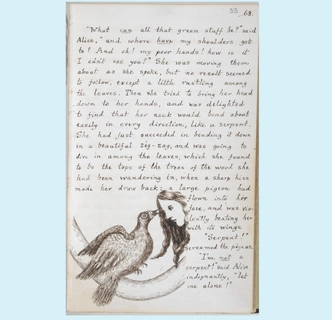 53 63.
"What can all that green stuff be?" said
Alice, "and where have my shoulders got
to? And oh! my poor hands! how is it
I ca'n't see you?" She was moving them
about as she spoke, but no result seemed
to follow, except a little rustling among
the leaves. Then she tried to bring her head
down to her hands, and was delighted
to find that her neck would bend about
easily in every direction, like a serpent.
She had just succeeded in bending it down
in a beautiful zig-zag, and was going to
dive in among the leaves, which she found
to be the tops of the trees of the wood she
had been wandering in, when a sharp hiss
made her draw back: a large pigeon had
flown into her
face, and was vio-
lently beating her
with its wings.
"Serpent!"
screamed the pigeon.
"I'm not a
serpent!" said Alice
indignantly, "let
me alone!"